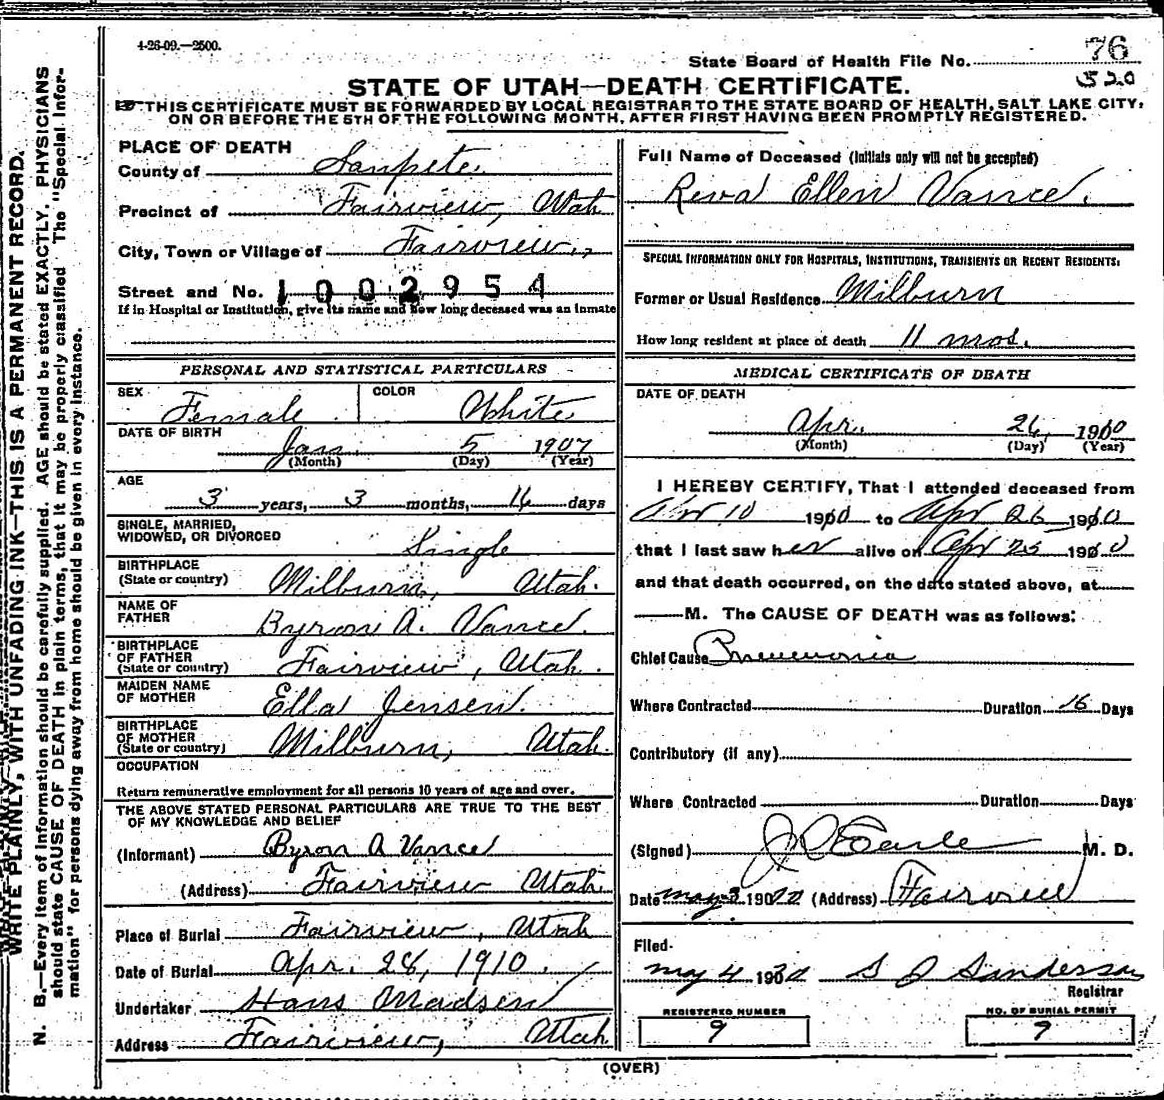 4-26-09.—2500.
State Board of Health File No. 76
520
STATE OF UTAH—DEATH CERTIFICATE.
THIS CERTIFICATE MUST BE FORWARDED BY LOCAL REGISTRAR TO THE STATE BOARD OF HEALTH, SALT LAKE CITY,
ON OR BEFORE THE 5TH OF THE FOLLOWING MONTH, AFTER FIRST HAVING BEEN PROMPTLY REGISTERED.
WRITE PLAINLY, WITH UNFADING INK—THIS IS A PERMANENT RECORD.
N. B.—Every item of information should be carefully supplied. AGE should be stated EXACTLY. PHYSICIANS
should state CAUSE OF DEATH in plain terms, that it may be properly classified. The "Special Infor-
mation" for persons dying away from home should be given in every instance.
PLACE OF DEATH
County of Sanpete
Precinct of Fairview, Utah
City, Town or Village of Fairview,
Street and No. 1002954
If in Hospital or Institution, give its name and how long deceased was an inmate
PERSONAL AND STATISTICAL PARTICULARS
SEX Female COLOR White
DATE OF BIRTH Jan. 5 1907
(Month) (Day) (Year)
AGE
3 years, 3 months, days
SINGLE, MARRIED,
WIDOWED, OR DIVORCED Single
BIRTHPLACE
(State or country) Milburn, Utah.
NAME OF
FATHER Byron A. Vance.
BIRTHPLACE
OF FATHER
(State or country) Fairview, Utah.
MAIDEN NAME
OF MOTHER Ella Jensen.
BIRTHPLACE
OF MOTHER
(State or country) Milburn, Utah.
OCCUPATION
Return remunerative employment for all persons 10 years of age and over.
THE ABOVE STATED PERSONAL PARTICULARS ARE TRUE TO THE BEST
OF MY KNOWLEDGE AND BELIEF
(Informant) Byron A Vance
(Address) Fairview Utah
Place of Burial Fairview, Utah
Date of Burial Apr. 28, 1910.
Undertaker Hans Madsen
Address Fairview, Utah
Full Name of Deceased (Initials only will not be accepted)
Reva Ellen Vance.
SPECIAL INFORMATION ONLY FOR HOSPITALS, INSTITUTIONS, TRANSIENTS OR RECENT RESIDENTS:
Former or Usual Residence Milburn
How long resident at place of death 11 mos.
MEDICAL CERTIFICATE OF DEATH
DATE OF DEATH
Apr. 26, 1910
(Month) (Day) (Year)
I HEREBY CERTIFY, That I attended deceased from
Apr 10 1910 to Apr 26 1910
that I last saw her alive on Apr 25 1910
and that death occurred, on the date stated above, at
M. The CAUSE OF DEATH was as follows:
Chief Cause Pneumonia
Where Contracted Duration 16 Days
Contributory (if any)
Where Contracted Duration Days
(Signed) Earle M. D.
Date May 3 1910 (Address) Fairview
Filed
May 4 1910 Sanderson
Registrar
REGISTERED NUMBER
9
NO. OF BURIAL PERMIT
9
(OVER)